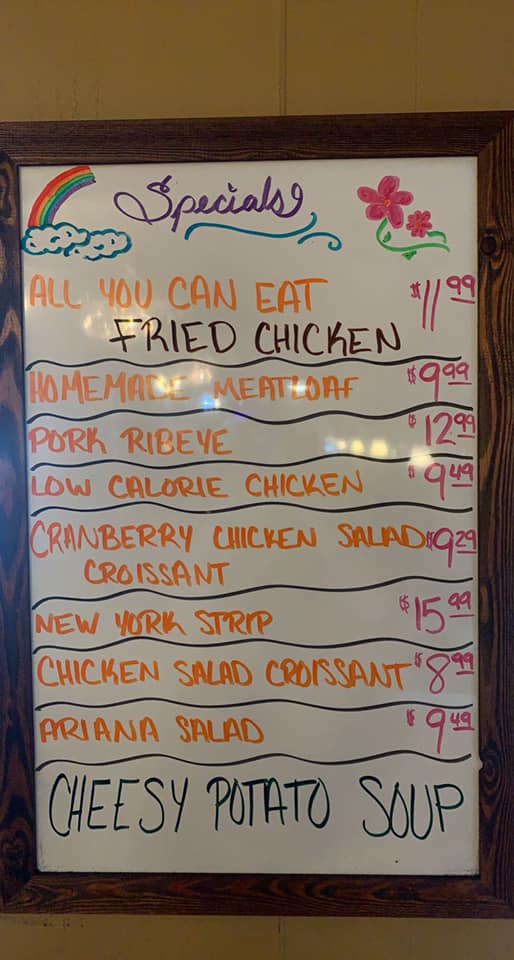 Specials
ALL YOU CAN EAT $11.99
FRIED CHICKEN
HOMEMADE MEATLOAF $9.99
PORK RIBEYE $12.99
LOW CALORIE CHICKEN $9.49
CRANBERRY CHICKEN SALAD $9.29
CROISSANT
NEW YORK STRIP $15.99
CHICKEN SALAD CROISSANT $8.99
ARIANA SALAD $9.49
CHEESY POTATO SOUP